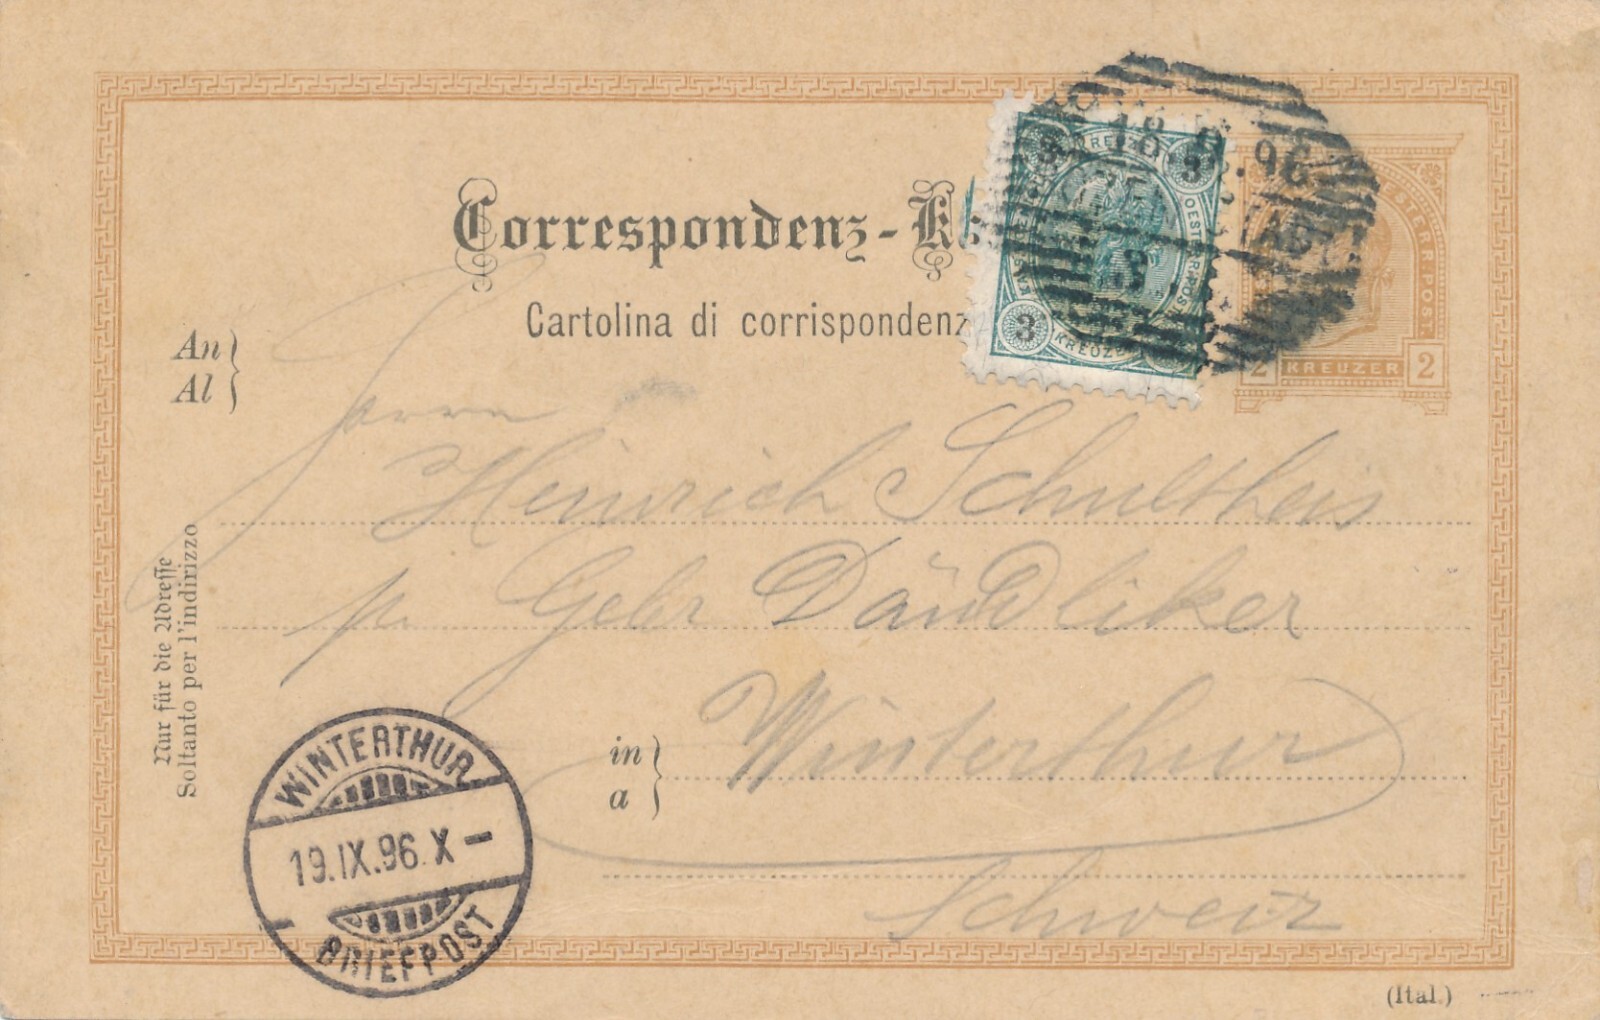 Correspondenz-K
Cartolina di corrispondenz
An
Al
Nur für die Adresse
Soltanto per l'indirizzo
3
3
KREUZER
3
KREUZER
OESTERR. POST
18. 96
OESTERR. POST
2 KREUZER 2
Herrn
Heinrich Schultheis
p. Gebr Dändliker
in
a
Winterthur
Schweiz
WINTERTHUR
19.IX.96.X–
BRIEFPOST
(Ital.)